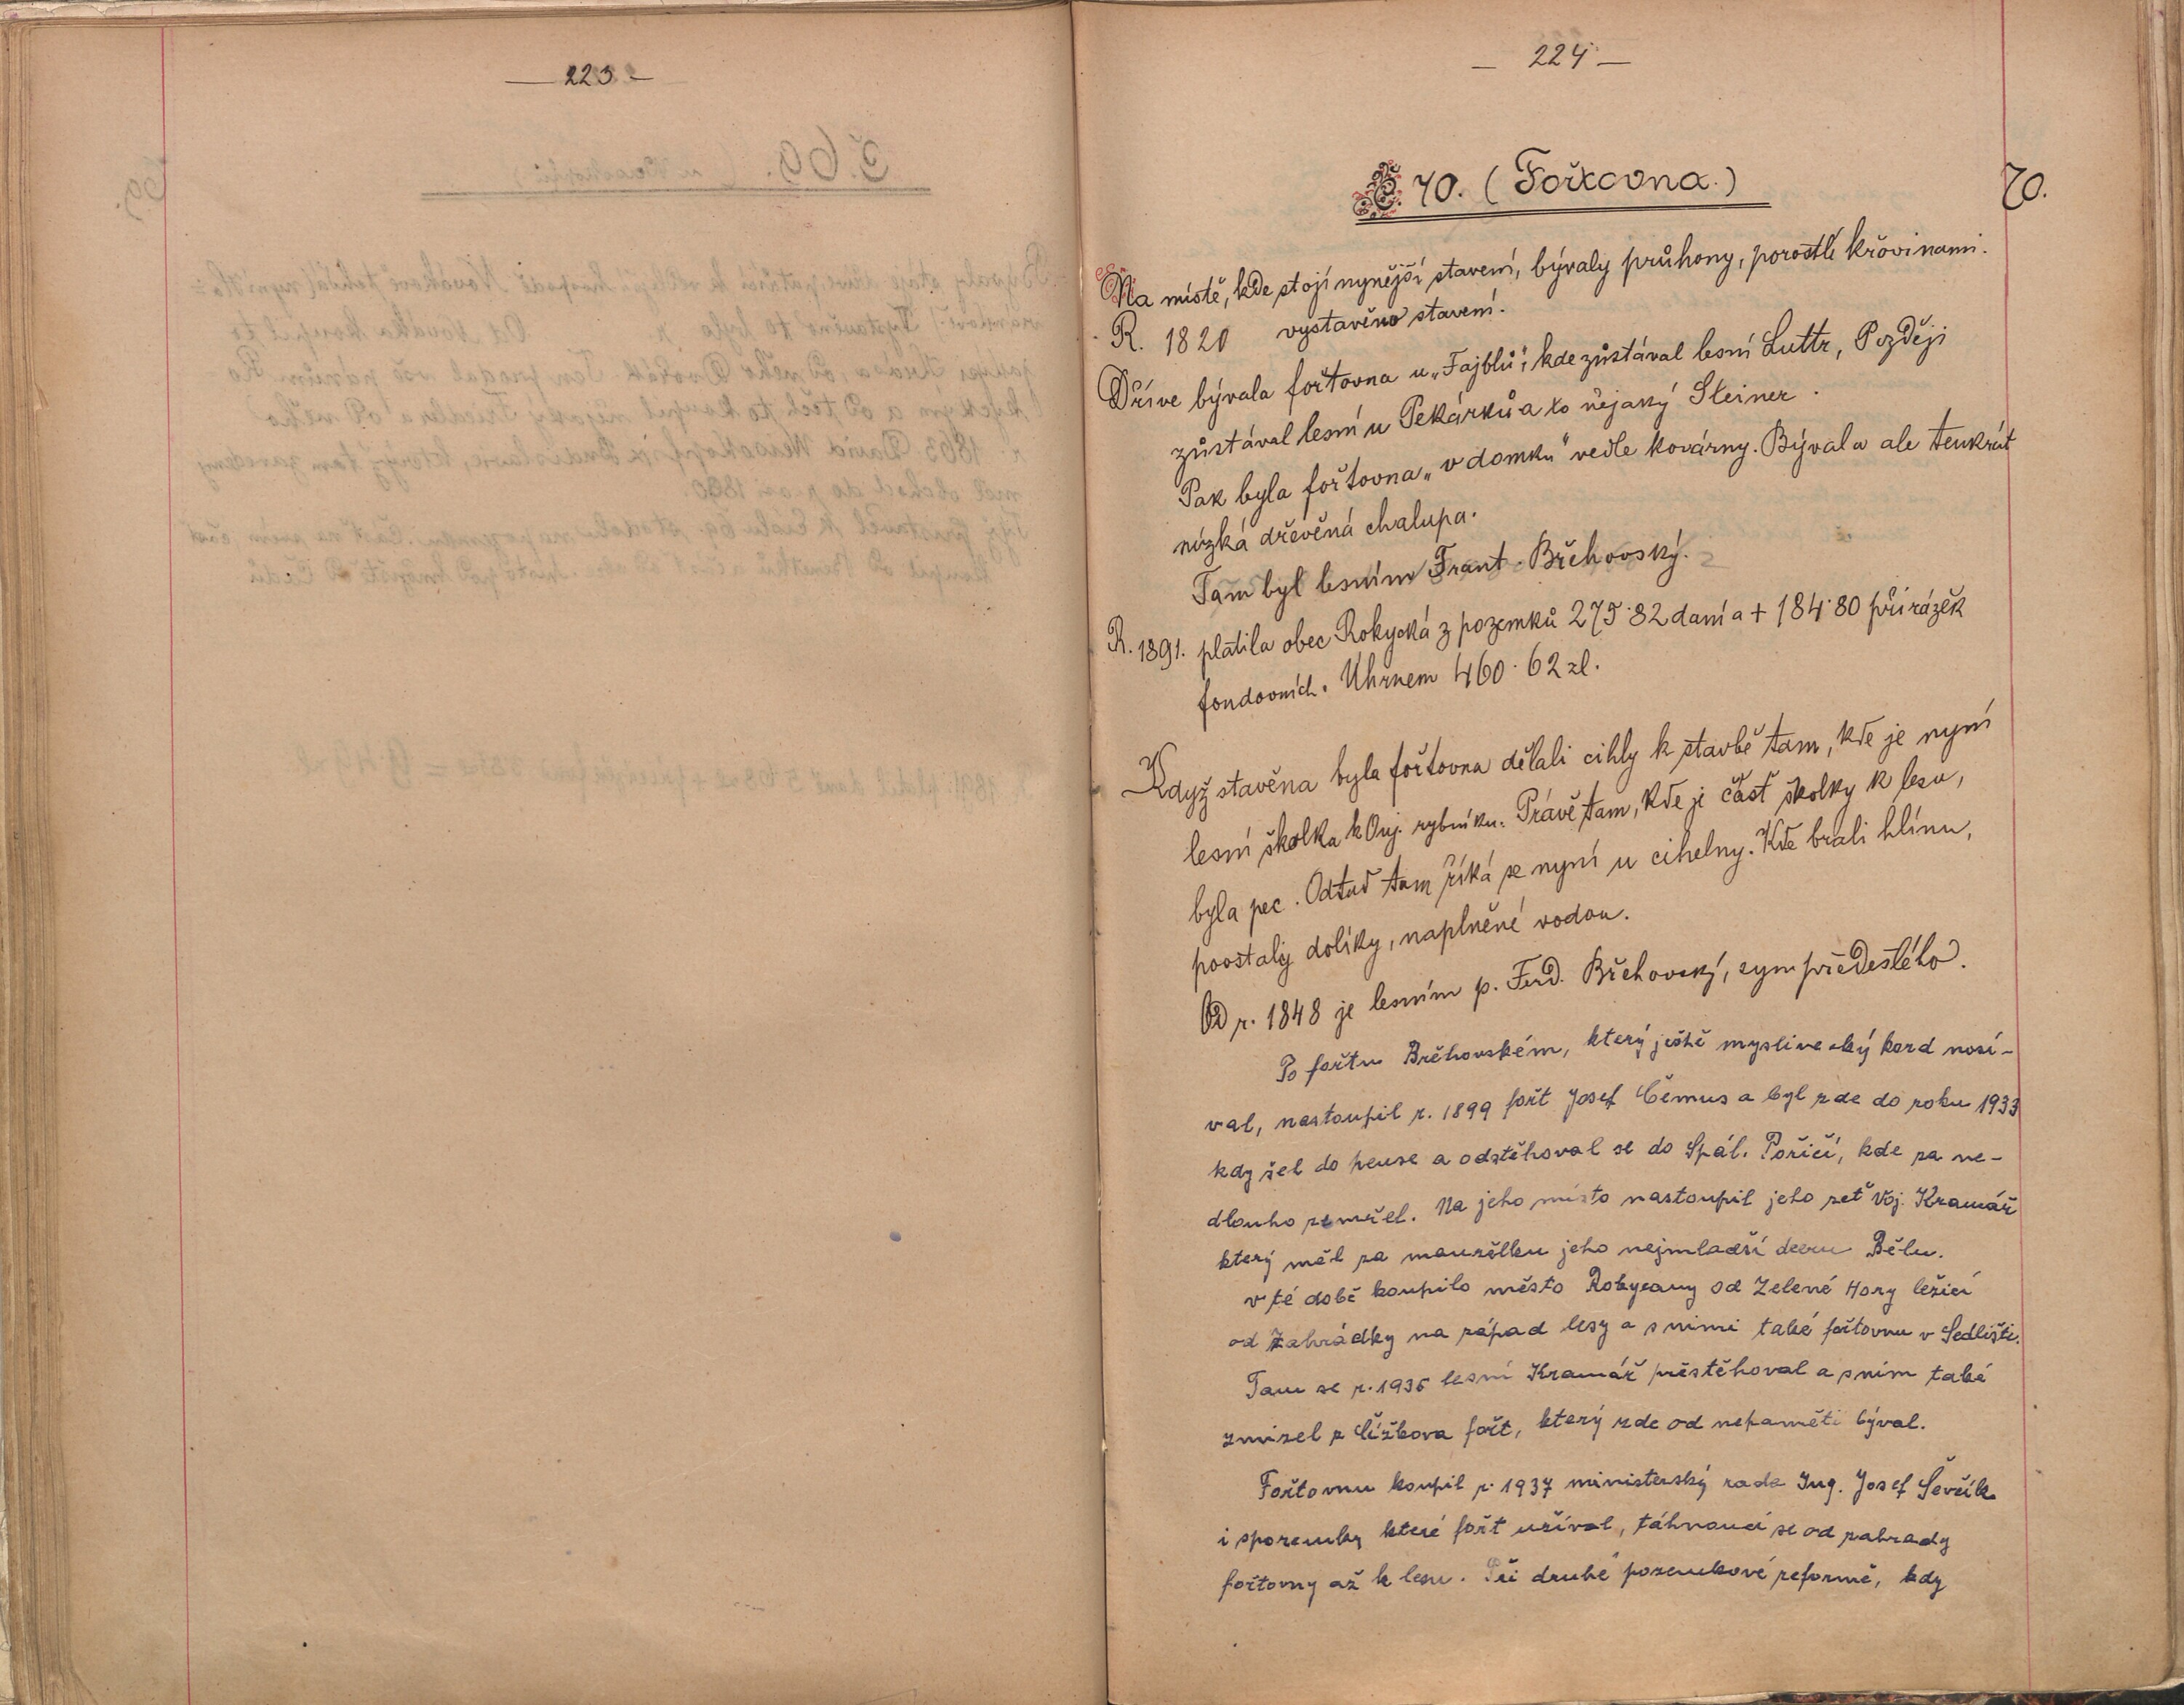 — 223 —
— 224 —
Č. 70. (Fořtovna.)
70.
Na místě, kde stojí nynější stavení, bývaly průhony, porostlé křovinami.
R. 1820 vystavěno stavení.
Dříve bývala fořtovna u „Fajblů“, kde zůstával lesní Luttr, Později
zůstával lesní u Pekárků a to nějaký Steiner.
Pak byla fořtovna „v domku“ vedle kovárny. Bývala ale tenkrát
nízká dřevěná chalupa.
Tam byl lesním Frant. Břehovský.
R. 1891. platila obec Rokycká z pozemků 275·82 daní a + 184·80 přirážek
fondovních. Úhrnem 460·62 zl.
Když stavěna byla fořtovna dělali cihly k stavbě tam, kde je nyní
lesní školka k Ouj. rybníku. Právě tam, kde je část školky k lesu,
byla pec. Odtud tam říká se nyní u cihelny. Kde brali hlínu,
poostaly dolíky, naplněné vodou.
Od r. 1848 je lesním p. Ferd. Břehovský, syn předešlého.
Po fořtu Břehovském, který ještě myslivecký kord nosí-
val, nastoupil r. 1899 fořt Josef Čemus a byl zde do roku 1933
kdy šel do pense a odstěhoval se do Spál. Poříčí, kde za ne-
dlouho zemřel. Na jeho místo nastoupil jeho zeť Voj. Kramář
který měl za manželku jeho nejmladší dceru Bělu.
v té době koupilo město Rokycany od Zelené Hory ležící
od Zahrádky na západ lesy a s nimi také fořtovnu v Sedlišti.
Tam se r. 1935 lesní Kramář přestěhoval a s ním také
zmizel z Čížkova fořt, který zde od nepaměti býval.
Fořtovnu koupil r. 1937 ministerský rada Ing. Josef Ševčík
i spozemky které fořt užíval, táhnoucí se od zahrady
fořtovny až k lesu. Při druhé pozemkové reformě, kdy